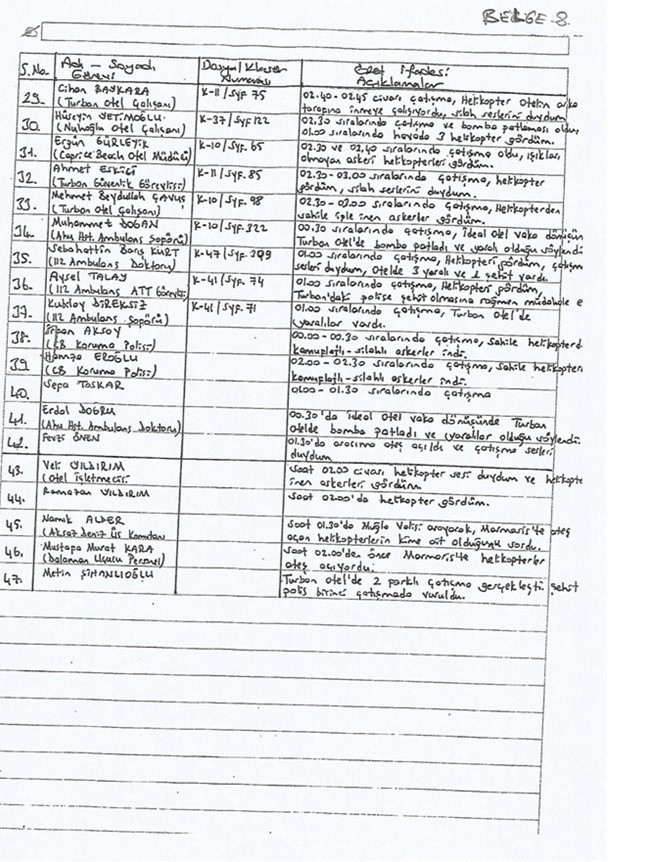 BELGE-8
S.No. Adı - Soyadı Görevi Dosya/Klasör Numarası Özet İfadesi Açıklamalar
29. Cihan BAŞKARA (Turban Otel Çalışanı) K-11/Syf. 75 02.40-02.45 civarı çatışma, Helikopter Otelin arka
tarafına inmeye çalışıyordu, silah seslerini duydum
30. Hüseyin YETİMOĞLU (Nuhoğlu Otel Çalışanı) K-37/Syf 122 02.30 sıralarında çatışma ve bomba patlaması oldu
01.00 sıralarında havada 3 helikopter gördüm.
31. Ergün GÜRLEYİK (Caprice Beach Otel Müdürü) K-10/Syf. 65 02.30 ve 03.40 sıralarında çatışma oldu, ışıkları
olmayan askeri helikopterleri gördüm.
32. Ahmet ESKİCİ (Turban Güvenlik Görevlisi) K-11/Syf. 85 02.30-03.00 sıralarında çatışma, helikopter
gördüm, silah seslerini duydum.
33. Mehmet Beydullah ÇAVUŞ (Turban Otel Çalışanı) K-10/Syf. 98 02.30-03.00 sıralarında çatışma, Helikopterden
sahile iple inen askerler gördüm.
34. Muhammet DOĞAN (Ahu Hst. Ambulans Şoförü) K-10/Syf. 322 00.30 sıralarında çatışma, ideal Otel vaka dönüşün
Turban Otel'de bomba patladı ve yaralı olduğu söylendi
35. Sebahattin Barış KURT (112 Ambulans Doktoru) K-47/Syf. 209 01.00 sıralarında çatışma, Helikopteri gördüm, çatışm
sesleri duydum, Otelde 3 yaralı ve 1 şehit vardı.
36. Aysel TALAY (112 Ambulans ATT Görevlisi) K-41/Syf. 74 01.00 sıralarında çatışma, Helikopteri gördüm,
Turban'daki polise şehit olmasına rağmen müdahale e
37. Kubilay DİREKSİZ (112 Ambulans Şoförü) K-41/Syf. 71 01.00 sıralarında çatışma, Turban Otel'de
yaralılar vardı.
38. İrfan AKSOY (CB Koruma Polisi) 00.00-00.30 sıralarında çatışma, Sahile helikopterd
kamuflajlı-silahlı askerler indi.
39. Hamza EROĞLU (CB Koruma Polisi) 02.00-02.30 sıralarında çatışma, Sahile helikopterden
kamuflajlı-silahlı askerler indi.
40. Sefa TOSKAR 01.00-01.30 sıralarında çatışma
41. Erdal DOĞRU (Ahu Hst. Ambulans Doktoru) 00.30'da ideal Otel vaka dönüşünde Turban
otelde bomba patladı ve yaralılar olduğu söylendi.
42. Fevzi ÖNEN 01.30'da aracıma ateş açıldı ve çatışma sesleri
duydum
43. Veli YILDIRIM (Otel İşletmecisi) Saat 02.00 civarı helikopter sesi duydum ve helikopte
inen askerleri gördüm.
44. Ramazan YILDIRIM Saat 02.00'da helikopter gördüm.
45. Namık ALPER (Aksaz Deniz Üs Komutanı) Saat 01.30'da Muğla Valisi arayarak, Marmaris'te ateş
açan helikopterlerin kime ait olduğunu sordu.
46. Mustafa Murat KARA (Dalaman Uçucu Personel) Saat 02.00'den önce Marmaris'te helikopterler
ateş açıyordu.
47. Metin ŞİHANLIOĞLU Turban Otel'de 2 farklı çatışma gerçekleşti, Şehit
polis birinci çatışmada vuruldu.